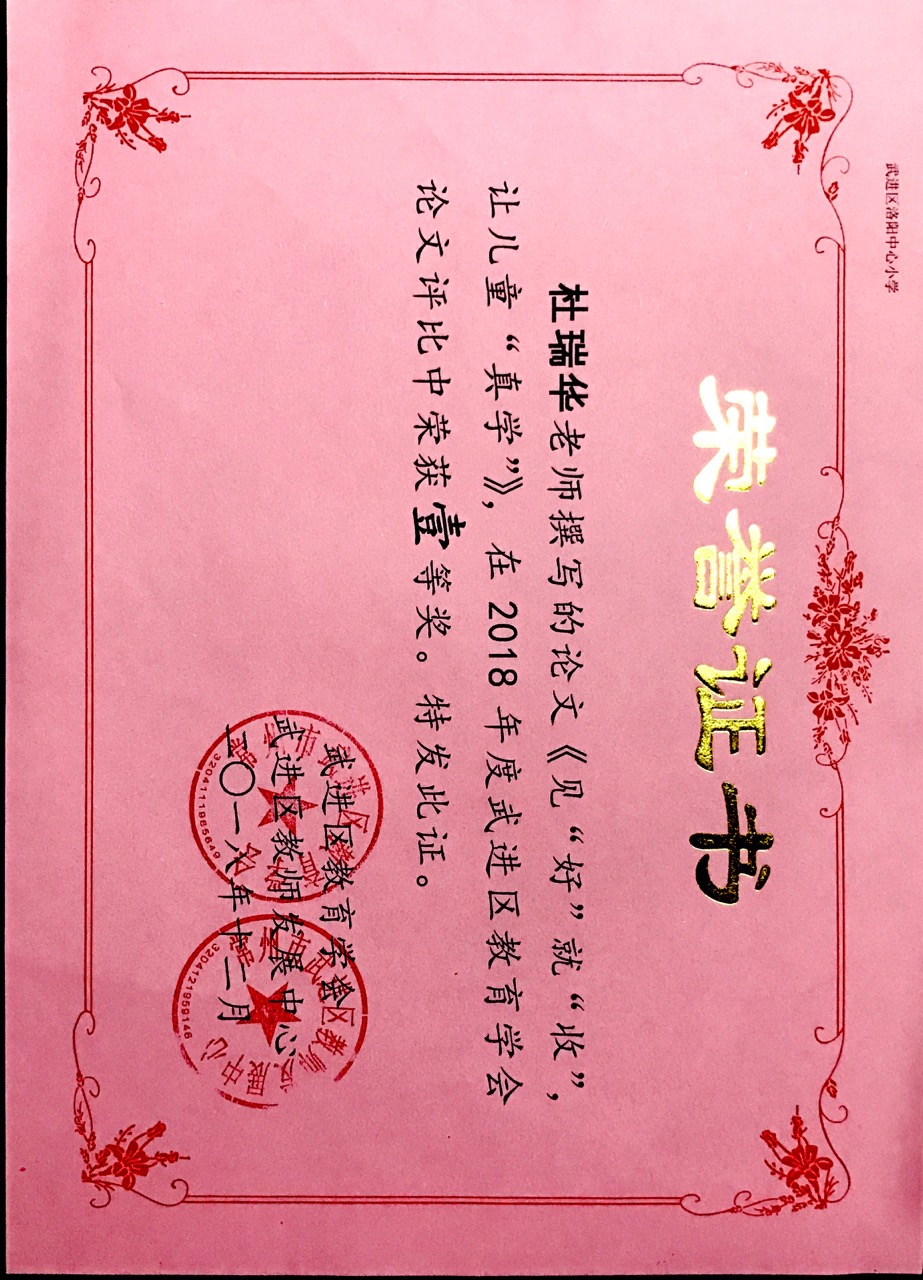 武进区洛阳中心小学
荣誉证书
杜瑞华老师撰写的论文《见“好”就“收”，
让儿童“真学”》，在 2018 年度武进区教育学会
论文评比中荣获壹等奖。特发此证。
武进区教育学会
武进区教师发展中心
二〇一八年十二月
3204111986649
3204121959146